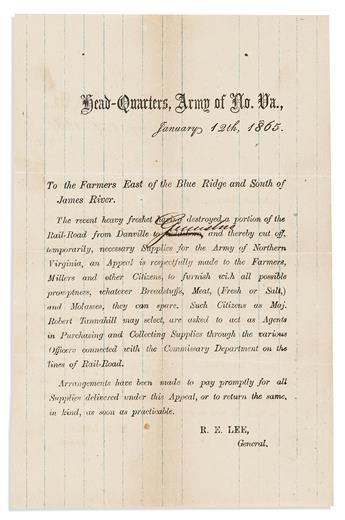 Head-Quarters, Army of No. Va.,
January 12th, 1865.
To the Farmers East of the Blue Ridge and South of
James River.
The recent heavy freshet having destroyed a portion of the
Rail-Road from Danville to Greensboro and thereby cut off,
temporarily, necessary Supplies for the Army of Northern
Virginia, an Appeal is respectfully made to the Farmers,
Millers and other Citizens, to furnish with all possible
promptness, whatever Breadstuffs, Meat, (Fresh or Salt,)
and Molasses, they can spare. Such Citizens as Maj.
Robert Tannahill may select, are asked to act as Agents
in Purchasing and Collecting Supplies through the various
Officers connected with the Commissary Department on the
lines of Rail-Road.
Arrangements have been made to pay promptly for all
Supplies delivered under this Appeal, or to return the same,
in kind, as soon as practicable.
R. E. LEE,
General.